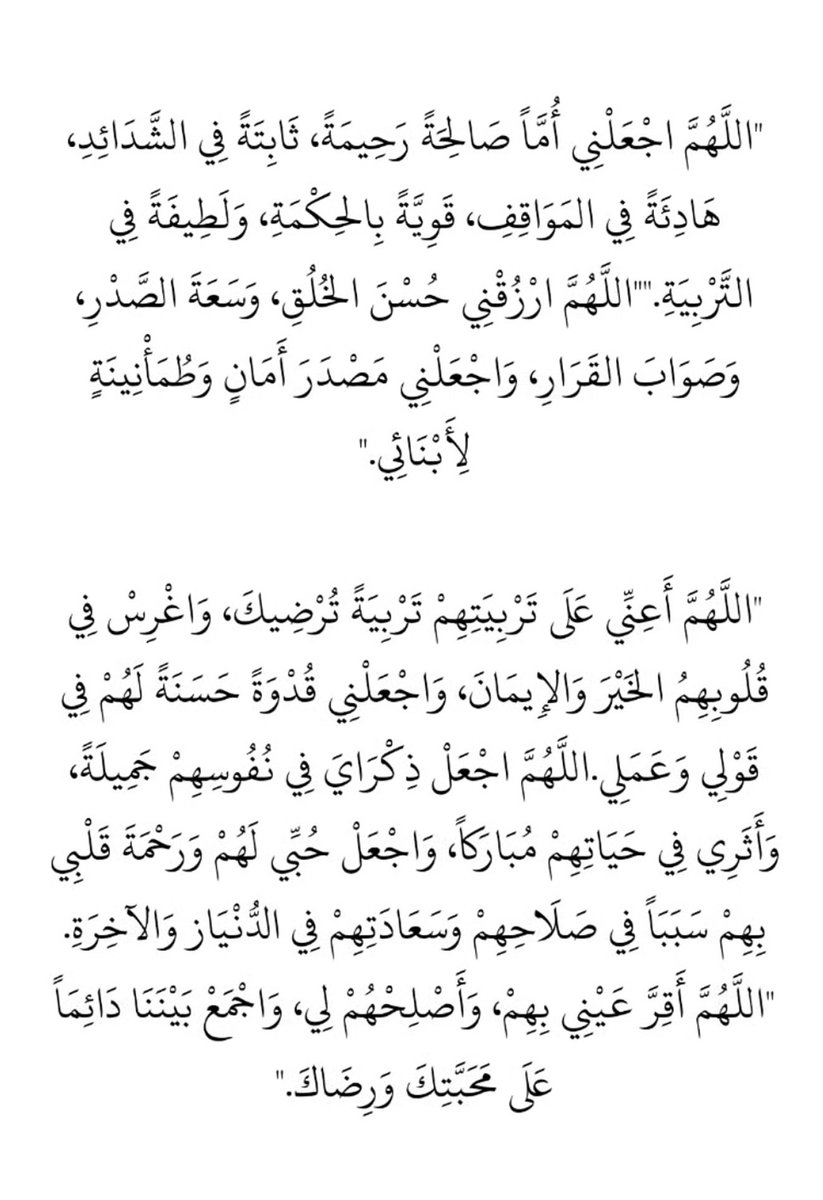 "اللَّهُمَّ اجْعَلْنِي أُمَّاً صَالِحَةً رَحِيمَةً، ثَابِتَةً فِي الشَّدَائِدِ،
هَادِئَةً فِي المَوَاقِفِ، قَوِيَّةً بِالحِكْمَةِ، وَلَطِيفَةً فِي
التَّرْبِيَةِ.""اللَّهُمَّ ارْزُقْنِي حُسْنَ الخُلُقِ، وَسَعَةَ الصَّدْرِ،
وَصَوَابَ القَرَارِ، وَاجْعَلْنِي مَصْدَرَ أَمَانٍ وَطُمَأْنِينَةٍ
لِأَبْنَائِي."
"اللَّهُمَّ أَعِنِّي عَلَى تَرْبِيَتِهِمْ تَرْبِيَةً تُرْضِيكَ، وَاغْرِسْ فِي
قُلُوبِهِمُ الخَيْرَ وَالإِيمَانَ، وَاجْعَلْنِي قُدْوَةً حَسَنَةً لَهُمْ فِي
قَوْلِي وَعَمَلِي.اللَّهُمَّ اجْعَلْ ذِكْرَايَ فِي نُفُوسِهِمْ جَمِيلَةً،
وَأَثَرِي فِي حَيَاتِهِمْ مُبَارَكاً، وَاجْعَلْ حُبِّي لَهُمْ وَرَحْمَةَ قَلْبِي
بِهِمْ سَبَبَاً فِي صَلَاحِهِمْ وَسَعَادَتِهِمْ فِي الدُّنْيَاز وَالآخِرَةِ.
"اللَّهُمَّ أَقِرَّ عَيْنِي بِهِمْ، وَأَصْلِحْهُمْ لِي، وَاجْمَعْ بَيْنَنَا دَائِمَاً
عَلَى مَحَبَّتِكَ وَرِضَاكَ."